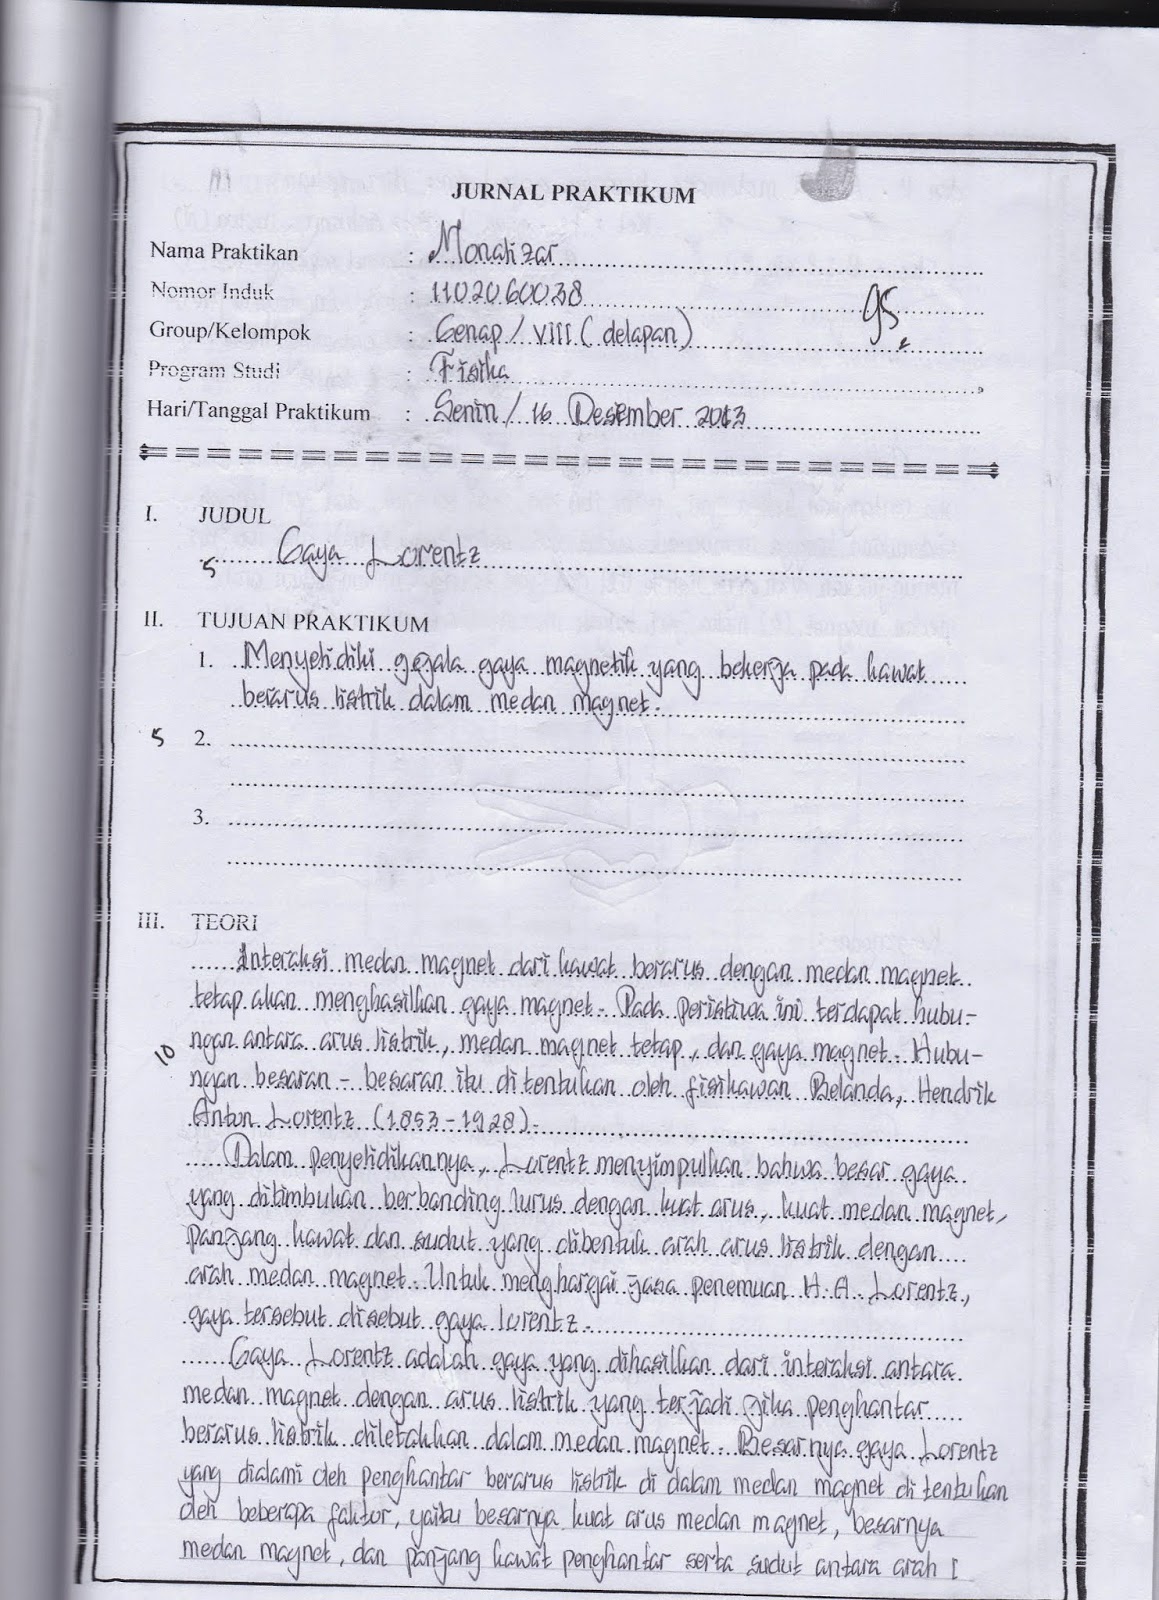 JURNAL PRAKTIKUM
Nama Praktikan : Monalizar
Nomor Induk : 1102060038
95
Group/Kelompok : Genap / VIII ( delapan )
Program Studi : Fisika
Hari/Tanggal Praktikum : Senin / 16 Desember 2013
I. JUDUL
5 Gaya Lorentz
II. TUJUAN PRAKTIKUM
1. Menyelidiki gejala gaya magnetik yang bekerja pada kawat
berarus listrik dalam medan magnet.
5 2.
3.
III. TEORI
Interaksi medan magnet dari kawat berarus dengan medan magnet
tetap akan menghasilkan gaya magnet. Pada peristiwa ini terdapat hubu-
10 ngan antara arus listrik, medan magnet tetap, dan gaya magnet. Hubu-
ngan besaran - besaran itu ditentukan oleh fisikawan Belanda, Hendrik
Anton Lorentz (1853-1928).
Dalam penyelidikannya, Lorentz menyimpulkan bahwa besar gaya
yang ditimbulkan berbanding lurus dengan kuat arus, kuat medan magnet,
panjang kawat dan sudut yang dibentuk arah arus listrik dengan
arah medan magnet. Untuk menghargai jasa penemuan H.A. Lorentz,
gaya tersebut disebut gaya lorentz.
Gaya Lorentz adalah gaya yang dihasilkan dari interaksi antara
medan magnet dengan arus listrik yang terjadi jika penghantar
berarus listrik diletakkan dalam medan magnet. Besarnya gaya Lorentz
yang dialami oleh penghantar berarus listrik di dalam medan magnet ditentukan
oleh beberapa faktor, yaitu besarnya kuat arus medan magnet, besarnya
medan magnet, dan panjang kawat penghantar serta sudut antara arah I